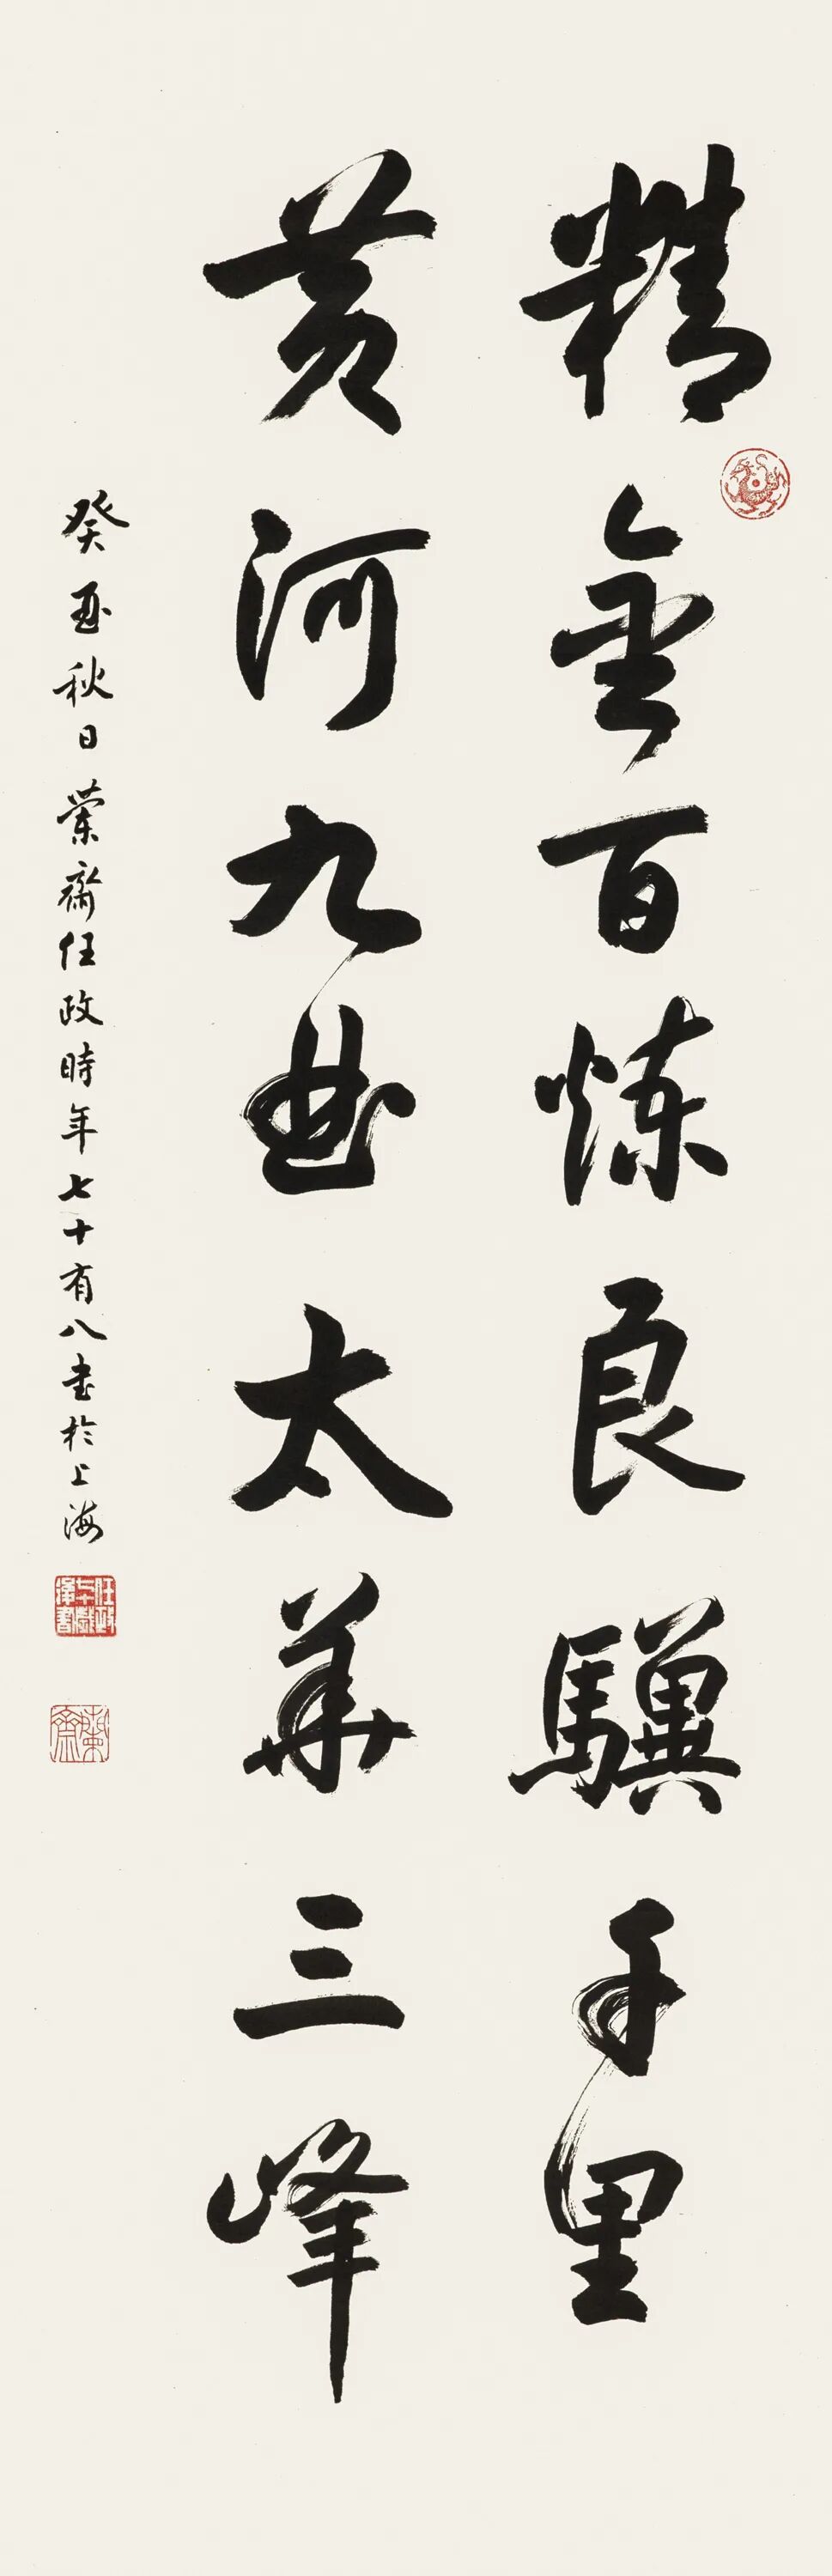 精金百炼良驥千里
黄河九曲太華三峰
癸酉秋日蘭齋任政時年七十有八書於上海
任政七十歲後書
蘭齋